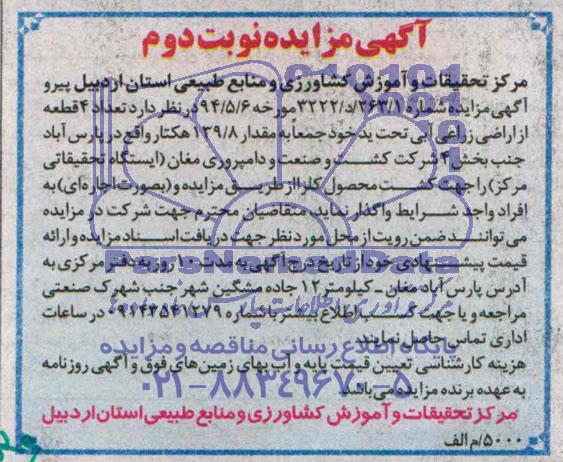 آگهی مزایده نوبت دوم
مرکز تحقیقات و آموزش کشاورزی و منابع طبیعی استان اردبیل پیرو
آگهی مزایده شماره ۲۶۳/۱/د/۳۲۲۲ مورخه ۹۴/۵/۶ در نظر دارد تعداد ۴ قطعه
از اراضی زراعی آبی تحت ید خود جمعاً به مقدار ۱۳۹/۸ هکتار واقع در پارس آباد
جنب بخش ۴ شرکت کشت و صنعت و دامپروری مغان (ایستگاه تحقیقاتی
مرکز) را جهت کشت محصول کلزا از طریق مزایده و (بصورت اجاره‌ای) به
افراد واجد شرایط واگذار نماید، متقاضیان محترم جهت شرکت در مزایده
می توانند ضمن رویت از محل مورد نظر جهت دریافت اسناد مزایده و ارائه
قیمت پیشنهادی خود از تاریخ درج آگهی به مدت ۱۰ روز به دفتر مرکزی به
آدرس پارس آباد مغان - کیلومتر ۱۲ جاده مشگین شهر جنب شهرک صنعتی
مراجعه و یا جهت کسب اطلاع بیشتر با شماره ۰۹۱۴۳۵۴۱۲۷۹ در ساعات
اداری تماس حاصل نمایند.
هزینه کارشناسی تعیین قیمت پایه و آب بهای زمین‌های فوق و آگهی روزنامه
به عهده برنده مزایده می‌باشد.
مرکز تحقیقات و آموزش کشاورزی و منابع طبیعی استان اردبیل
۵۰۰۰/م الف
ParsNamadData
پایگاه اطلاع رسانی مناقصه و مزایده
۰۲۱-۸۸۳۴۹۶۷۰-۵